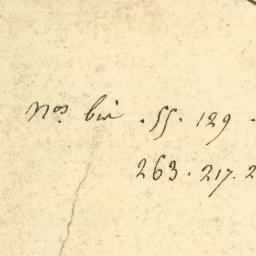 Nos. bis . 55 . 129 .
263 . 217 . 2